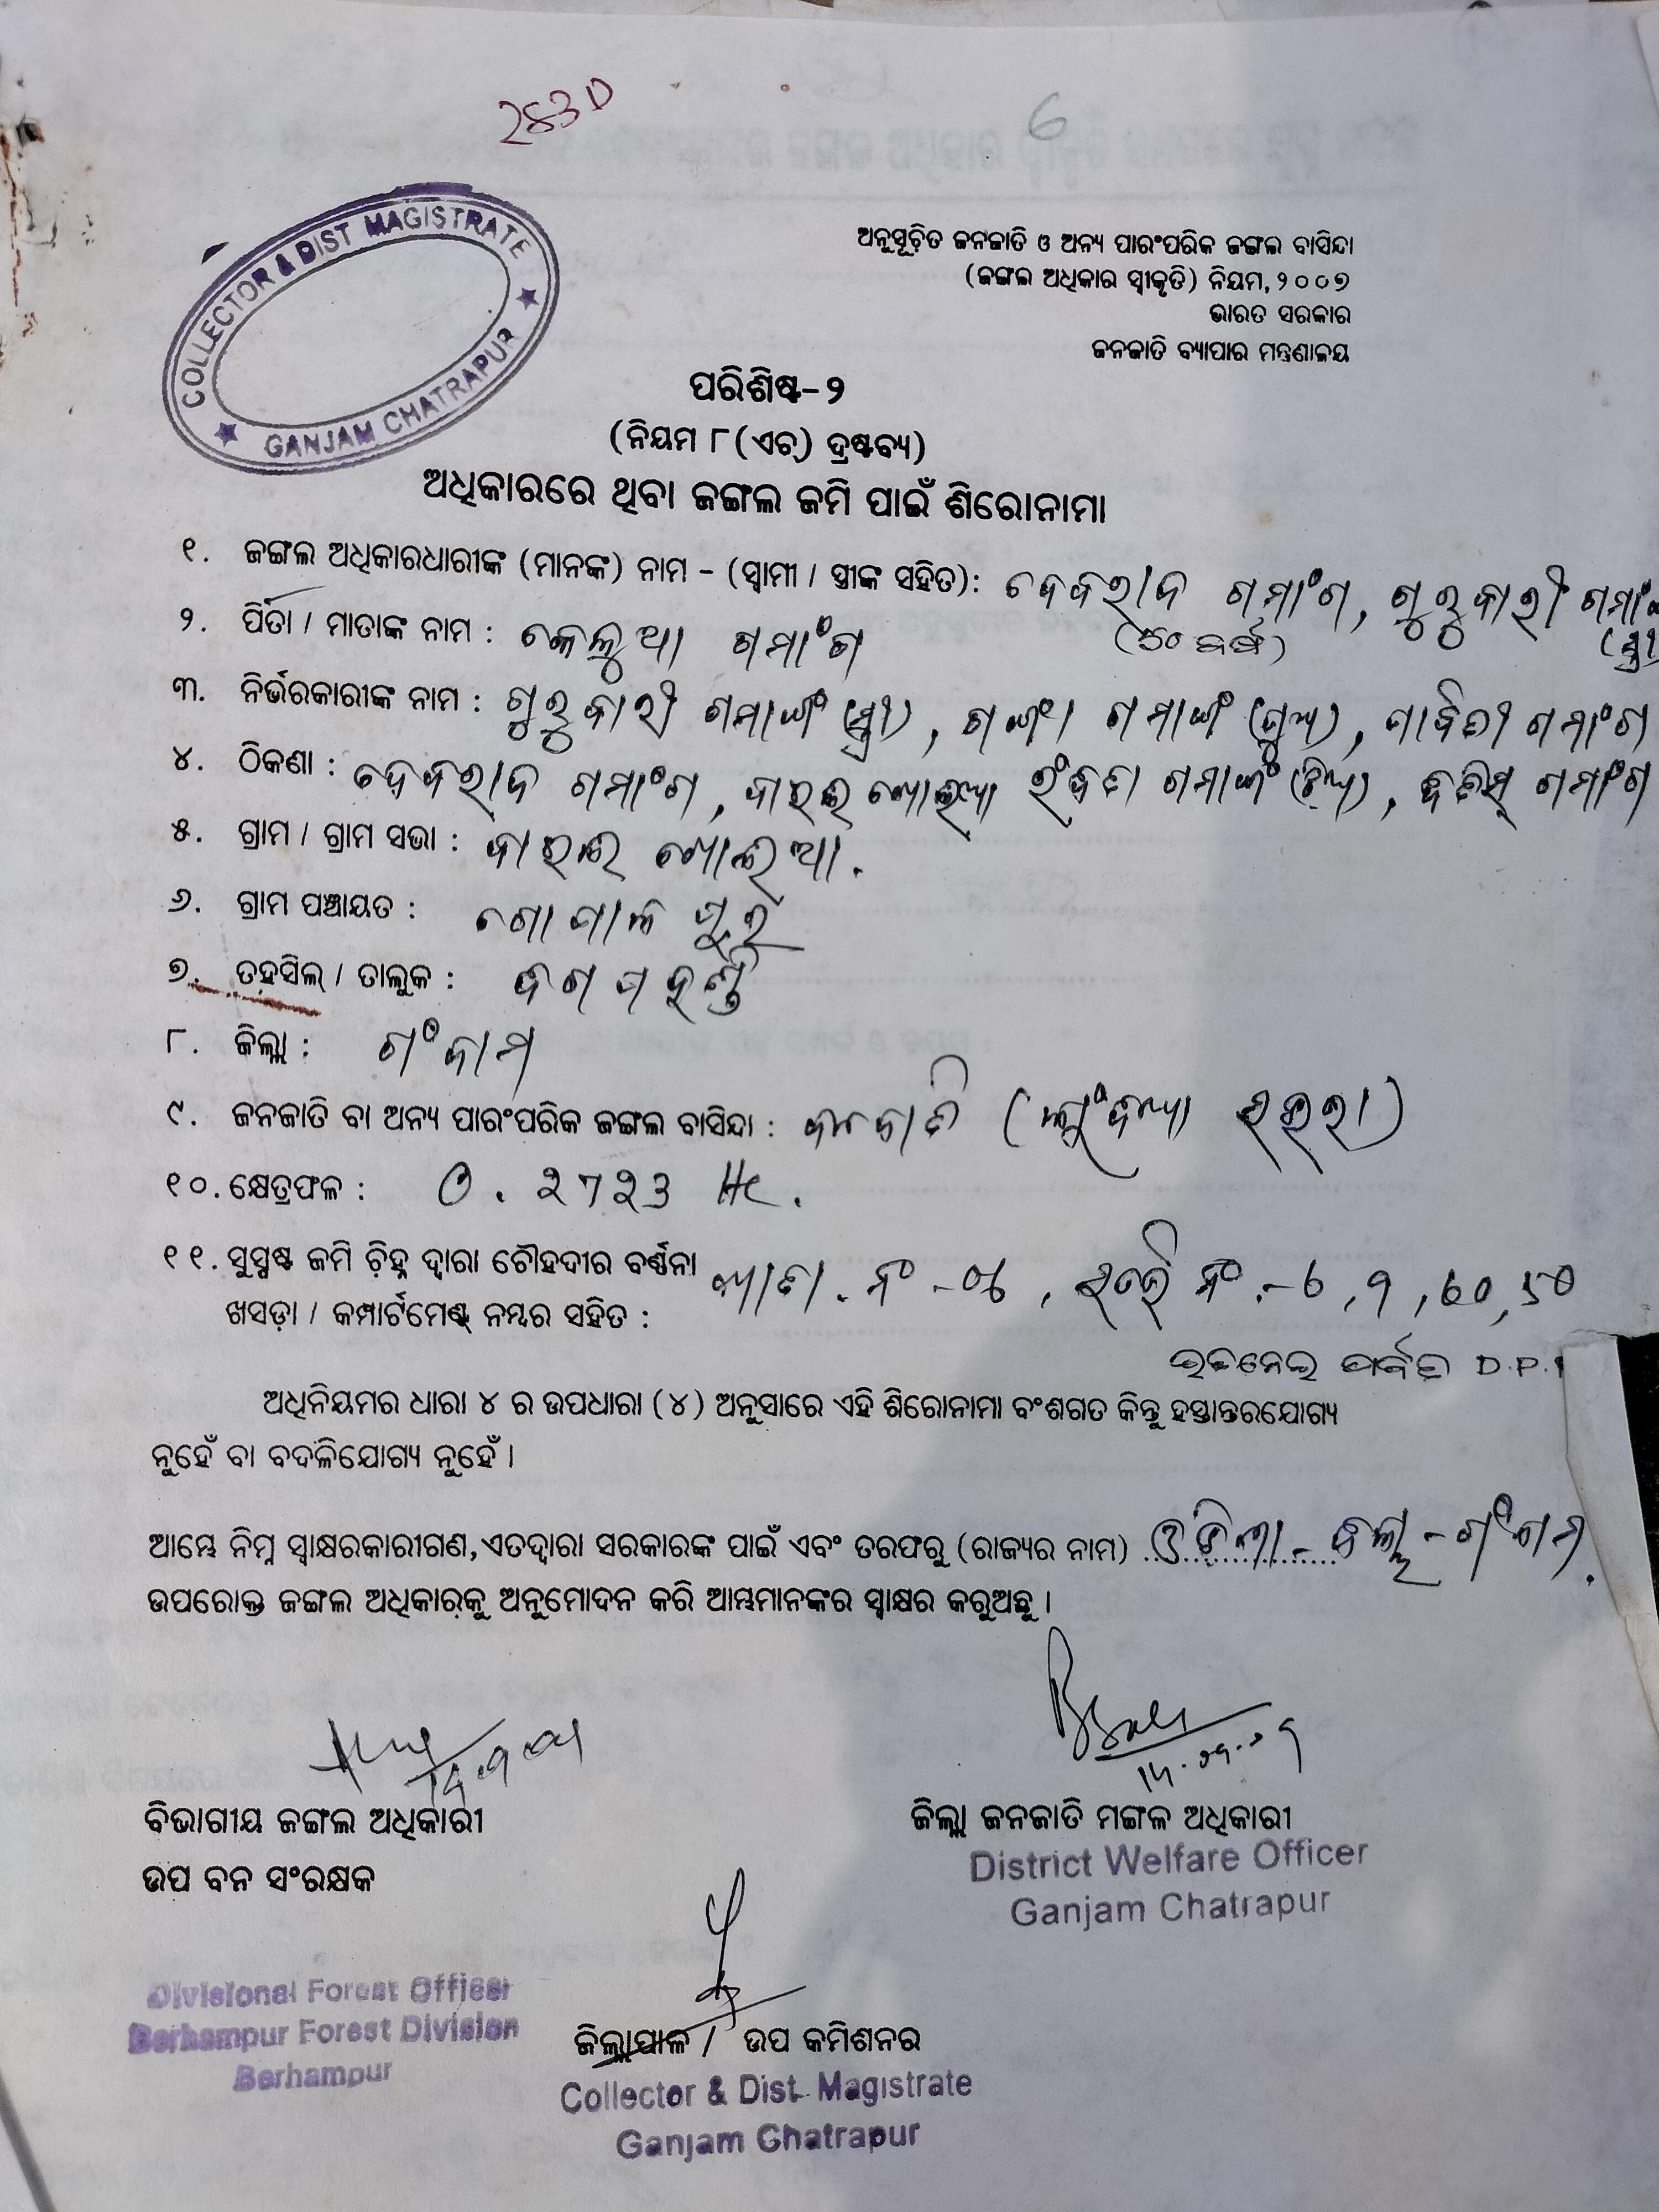 243D
6
COLLECTOR & DIST MAGISTRATE
GANJAM CHATRAPUR
ଅନୁସୂଚିତ ଜନଜାତି ଓ ଅନ୍ୟ ପାରଂପରିକ ଜଙ୍ଗଲ ବାସିନ୍ଦା
(ଜଙ୍ଗଲ ଅଧିକାର ସ୍ୱୀକୃତି) ନିୟମ, ୨୦୦୭
ଭାରତ ସରକାର
ଜନଜାତି ବ୍ୟାପାର ମନ୍ତ୍ରଣାଳୟ
ପରିଶିଷ୍ଟ-୨
(ନିୟମ ୮ (ଏଚ୍) ଦ୍ରଷ୍ଟବ୍ୟ)
ଅଧିକାରରେ ଥିବା ଜଙ୍ଗଲ ଜମି ପାଇଁ ଶିରୋନାମା
୧. ଜଙ୍ଗଲ ଅଧିକାରଧାରୀଙ୍କ (ମାନଙ୍କ) ନାମ - (ସ୍ୱାମୀ / ସ୍ତ୍ରୀଙ୍କ ସହିତ): ଦେବରାଜ ଗମାଂଗ, ଗୁରୁବାରୀ ଗମାଂଗ
(୪୦ ବର୍ଷ) (ସ୍ତ୍ରୀ)
୨. ପିତା / ମାତାଙ୍କ ନାମ : କେଲୁଆ ଗମାଂଗ
୩. ନିର୍ଭରକାରୀଙ୍କ ନାମ : ଗୁରୁବାରୀ ଗମାଙ୍ଗ (ସ୍ତ୍ରୀ), ଗମାଙ୍ଗ (ପୁଅ), ଗମାଂଗ
୪. ଠିକଣା : ଦେବରାଜ ଗମାଂଗ, ଗମାଙ୍ଗ (ଝିଅ), ଗମାଂଗ
୫. ଗ୍ରାମ / ଗ୍ରାମ ସଭା :
୬. ଗ୍ରାମ ପଞ୍ଚାୟତ : ଗୋପାଳପୁର
୭. ତହସିଲ୍ / ତାଲୁକ : ଦିଗପହଣ୍ଡି
୮. ଜିଲ୍ଲା : ଗଂଜାମ
୯. ଜନଜାତି ବା ଅନ୍ୟ ପାରଂପରିକ ଜଙ୍ଗଲ ବାସିନ୍ଦା : ଜନଜାତି
୧୦. କ୍ଷେତ୍ରଫଳ : 0.2723 He.
୧୧. ସୁସ୍ପଷ୍ଟ ଜମି ଚିହ୍ନ ଦ୍ୱାରା ଚୌହଦୀର ବର୍ଣ୍ଣନା
ଖସଡ଼ା / କମ୍ପାର୍ଟମେଣ୍ଟ ନମ୍ବର ସହିତ : ଖାତା. ନଂ
D.P.
ଅଧିନିୟମର ଧାରା ୪ ର ଉପଧାରା (୪) ଅନୁସାରେ ଏହି ଶିରୋନାମା ବଂଶଗତ କିନ୍ତୁ ହସ୍ତାନ୍ତରଯୋଗ୍ୟ
ନୁହେଁ ବା ବଦଳିଯୋଗ୍ୟ ନୁହେଁ ।
ଆମ୍ଭେ ନିମ୍ନ ସ୍ୱାକ୍ଷରକାରୀଗଣ, ଏତଦ୍ୱାରା ସରକାରଙ୍କ ପାଇଁ ଏବଂ ତରଫରୁ (ରାଜ୍ୟର ନାମ) ଓଡିଶା
ଉପରୋକ୍ତ ଜଙ୍ଗଲ ଅଧିକାରକୁ ଅନୁମୋଦନ କରି ଆମ୍ଭମାନଙ୍କର ସ୍ୱାକ୍ଷର କରୁଅଛୁ ।
ବିଭାଗୀୟ ଜଙ୍ଗଲ ଅଧିକାରୀ
ଉପ ବନ ସଂରକ୍ଷକ
Divisional Forest Officer
Berhampur Forest Division
Berhampur
ଜିଲ୍ଲା ଜନଜାତି ମଙ୍ଗଳ ଅଧିକାରୀ
District Welfare Officer
Ganjam Chatrapur
ଜିଲ୍ଲାପାଳ / ଉପ କମିଶନର
Collector & Dist. Magistrate
Ganjam Chatrapur